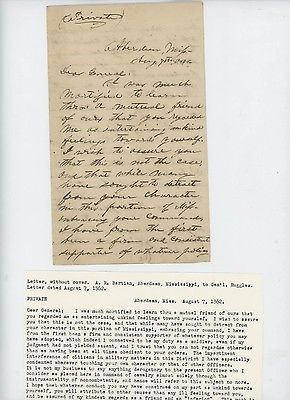 (Private)
Aberdeen, Miss
Aug. 7th 1862
Dear General:
I was much
mortified to learn
thru a mutual friend
of ours that you regarded
me as entertaining unkind
feelings towards yourself.
I wish to assure you
that this is not the case,
and that while many
have sought to detract
from your character
in this portion of Miss.
embracing your command,
I have from the first
been a firm and consistent
supporter of whatever policy
Letter, without cover. A. E. Bartian, Aberdeen, Mississippi, to Gen'l. Ruggles.
Letter dated August 7, 1862.
PRIVATE Aberdeen, Miss. August 7, 1862.
Dear General: I was much mortified to learn thru a mutual friend of ours that
your regarded me as entertaining unkind feelings toward yourself. I wish to assure
you that this is not the case, and that while many have sought to detract from
your character in this section of Mississippi, embracing your command, I have
from the first been a firm and consistent supporter of whatever policy you may
have adopted, which indeed I conceived to be my duty as a soldier, even if my
judgment had not yielded assent, and I trust that you can not regard me otherwise
than as having been at all times obedient to your orders. The impertinent
interference of citizens in military matters in this District I have especially
condemned
It is not my business to say anything derogatory to the present officer who I
consider as placed here in command of cavalry almost solely through the
instrumentality of noncombatants, and hence will refer to this subject no more.
I hope that whatever conduct you may have construed on my part as unkind towards
yourself, you will attribute to other causes than my ill feeling toward you,
and be assured of my kindest regards as a friend and as